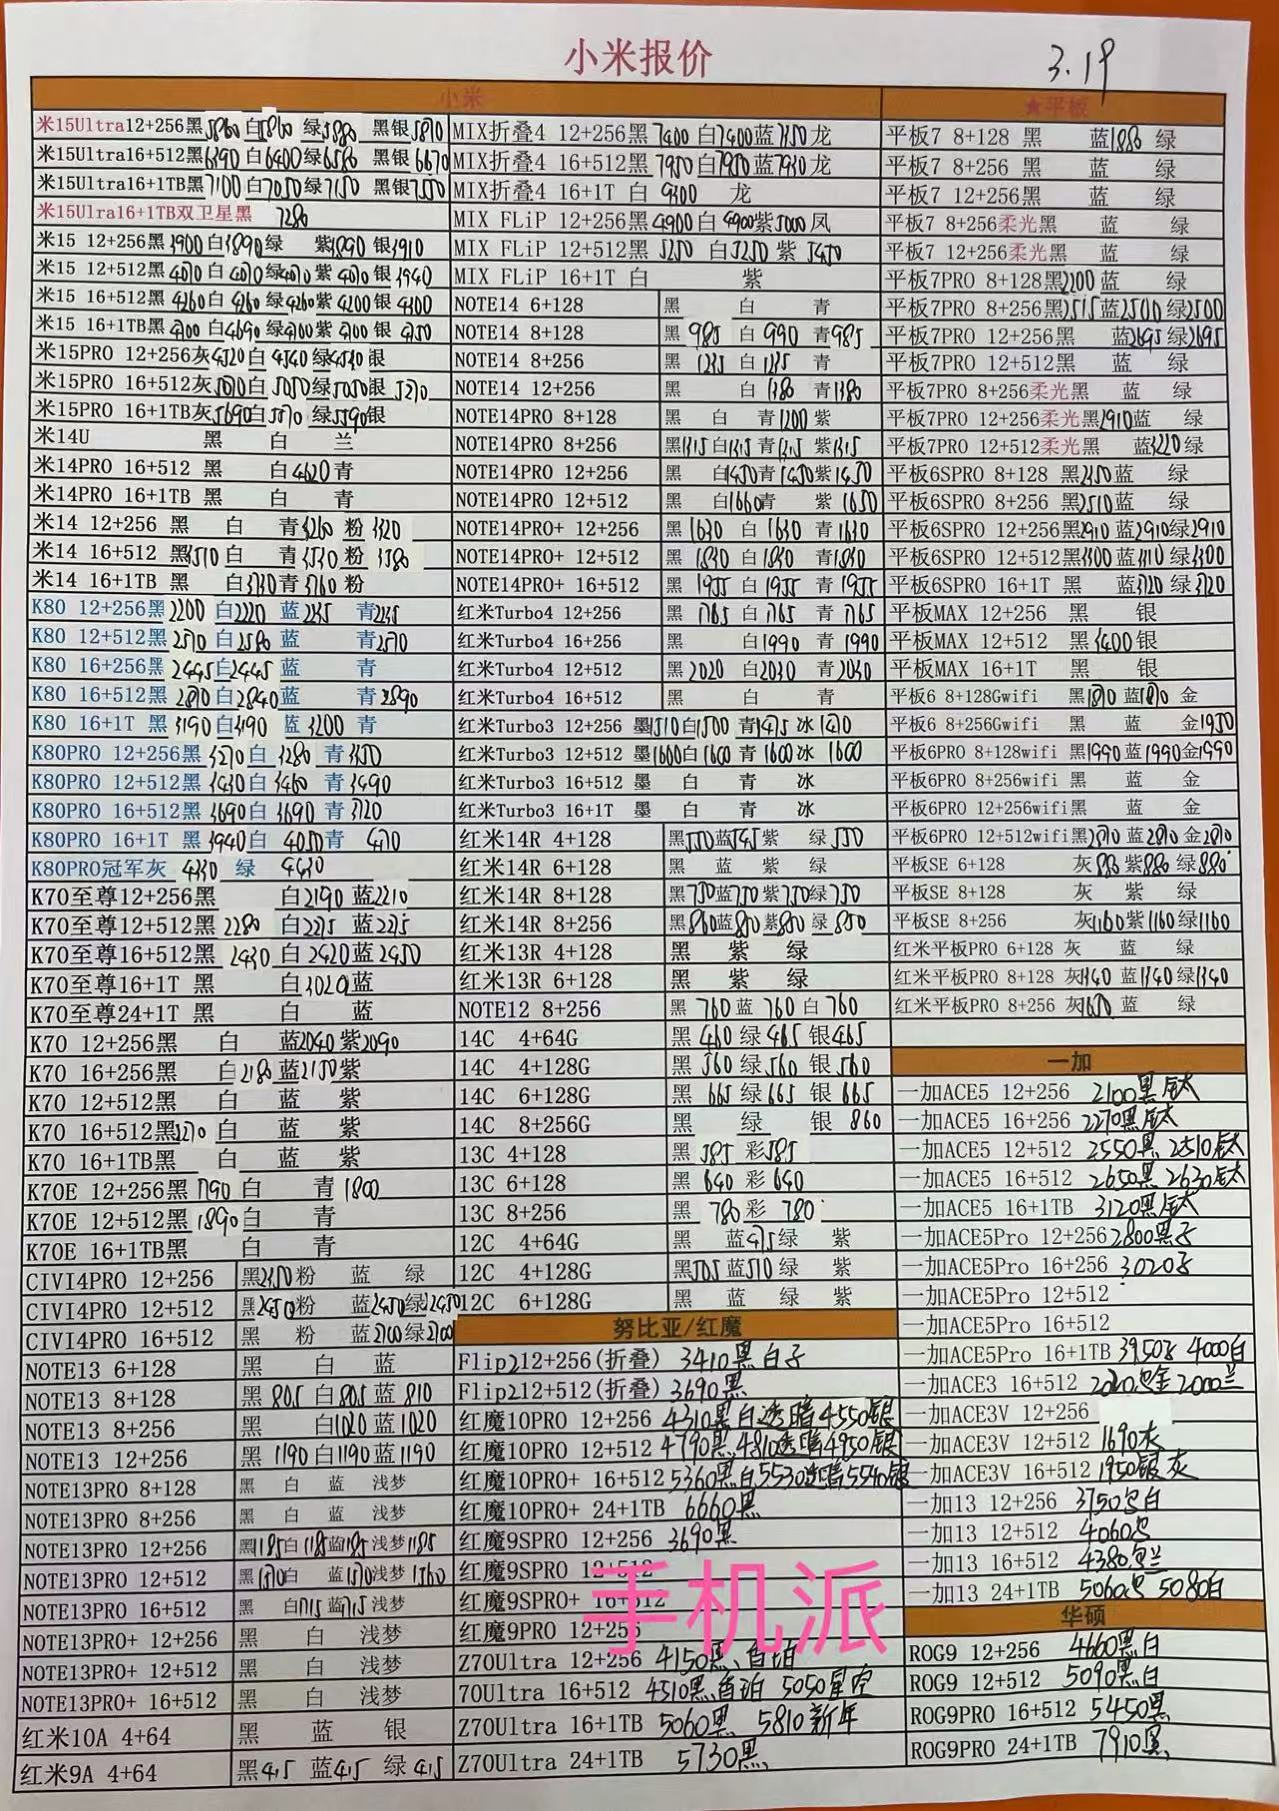 小米报价
3.19
小米
米15Ultra12+256黑5860 白5860 绿5880 黑银5870
米15Ultra16+512黑6390 白6400绿6580 黑银6670
米15Ultra16+1TB黑7100白7050绿7150 黑银7550
米15Ulra16+1TB双卫星黑 7280
米15 12+256黑3900白3890绿 紫3890 银3910
米15 12+512黑4070白4070绿4070紫4070银3940
米15 16+512黑4260白4260绿4260紫4200银4300
米15 16+1TB黑4700白4690绿4700紫4700银4750
米15PRO 12+256灰4520白4540绿4530银
米15PRO 16+512灰5070白5050绿5050银5270
米15PRO 16+1TB灰5690白5570绿5590银
米14U 黑 白 兰
米14PRO 16+512 黑 白4620青
米14PRO 16+1TB 黑 白 青
米14 12+256 黑 白 青3260粉3320
米14 16+512 黑3570白 青3530粉3580
米14 16+1TB 黑 白3730青3760粉
K80 12+256黑2200 白2220 蓝2235 青2235
K80 12+512黑2570白2580蓝 青2570
K80 16+256黑2445白2445蓝 青
K80 16+512黑2870白2840蓝 青2890
K80 16+1T 黑3190白3190 蓝3200 青
K80PRO 12+256黑3270白3280青3350
K80PRO 12+512黑3430白3460青3490
K80PRO 16+512黑3690白3690青3720
K80PRO 16+1T 黑3940白4050青4270
K80PRO冠军灰 4330 绿 4430
K70至尊12+256黑 白2190蓝2210
K70至尊12+512黑 2280 白2275蓝2275
K70至尊16+512黑 2430 白2420蓝2450
K70至尊16+1T 黑 白3020蓝
K70至尊24+1T 黑 白 蓝
K70 12+256黑 白 蓝2040紫2090
K70 16+256黑 白2180蓝2150紫
K70 12+512黑 白 蓝 紫
K70 16+512黑2270白 蓝 紫
K70 16+1TB黑 白 蓝 紫
K70E 12+256黑1790白 青1800
K70E 12+512黑1890白 青
K70E 16+1TB黑 白 青
CIVI4PRO 12+256 黑2350粉 蓝 绿
CIVI4PRO 12+512 黑2450粉 蓝2450绿2450
CIVI4PRO 16+512 黑 粉 蓝2700绿2700
NOTE13 6+128 黑 白 蓝
NOTE13 8+128 黑805 白805蓝810
NOTE13 8+256 黑 白1020蓝1020
NOTE13 12+256 黑1190白1190蓝1190
NOTE13PRO 8+128 黑 白 蓝 浅梦
NOTE13PRO 8+256 黑 白 蓝 浅梦
NOTE13PRO 12+256 黑1185白1185蓝1185浅梦1185
NOTE13PRO 12+512 黑1570白 蓝1570浅梦1560
NOTE13PRO 16+512 黑 白1715蓝1715浅梦
NOTE13PRO+ 12+256 黑 白 浅梦
NOTE13PRO+ 12+512 黑 白 浅梦
NOTE13PRO+ 16+512 黑 白 浅梦
红米10A 4+64 黑 蓝 银
红米9A 4+64 黑415 蓝415 绿415
MIX折叠4 12+256黑7400白7400蓝7350龙
MIX折叠4 16+512黑7950白7950蓝7930龙
MIX折叠4 16+1T 白 9300 龙
MIX FLiP 12+256黑4900白4900紫5000凤
MIX FLiP 12+512黑5250 白5250紫5450
MIX FLiP 16+1T 白 紫
NOTE14 6+128 黑 白 青
NOTE14 8+128 黑985 白990 青985
NOTE14 8+256 黑1235白1235 青
NOTE14 12+256 黑 白1380青1380
NOTE14PRO 8+128 黑 白 青1200紫
NOTE14PRO 8+256 黑1315白1315青1315紫1315
NOTE14PRO 12+256 黑 白1450青1450紫1450
NOTE14PRO 12+512 黑 白1660青 紫1650
NOTE14PRO+ 12+256 黑1630 白1630 青1630
NOTE14PRO+ 12+512 黑1830 白1830 青1830
NOTE14PRO+ 16+512 黑1955 白1955 青1955
红米Turbo4 12+256 黑1765 白1765 青1765
红米Turbo4 16+256 黑 白1990 青1990
红米Turbo4 12+512 黑2020 白2030 青2030
红米Turbo4 16+512 黑 白 青
红米Turbo3 12+256 墨1510白1500青1475冰1470
红米Turbo3 12+512 墨1600白1600青1600冰1600
红米Turbo3 16+512 墨 白 青 冰
红米Turbo3 16+1T 墨 白 青 冰
红米14R 4+128 黑550蓝545紫 绿550
红米14R 6+128 黑 蓝 紫 绿
红米14R 8+128 黑750蓝750紫750绿750
红米14R 8+256 黑860蓝850紫850绿850
红米13R 4+128 黑 紫 绿
红米13R 6+128 黑 紫 绿
NOTE12 8+256 黑760蓝760白760
14C 4+64G 黑460绿465银465
14C 4+128G 黑560绿560银560
14C 6+128G 黑665绿665银665
14C 8+256G 黑 绿 银860
13C 4+128 黑585 彩585
13C 6+128 黑640 彩640
13C 8+256 黑780 彩780
12C 4+64G 黑 蓝475绿 紫
12C 4+128G 黑505蓝510绿 紫
12C 6+128G 黑 蓝 绿 紫
努比亚/红魔
Flip212+256(折叠) 3410黑白子
Flip212+512(折叠) 3690黑
红魔10PRO 12+256 4310黑白透暗4550银
红魔10PRO 12+512 4790黑4810透暗4950银
红魔10PRO+ 16+512 5360黑白5530透暗5540银
红魔10PRO+ 24+1TB 6660黑
红魔9SPRO 12+256 3690黑
红魔9SPRO 12+512
红魔9SPRO+ 16+512
红魔9PRO 12+256
Z70Ultra 12+256 4150黑、首珀
70Ultra 16+512 4510黑首珀 5050星空
Z70Ultra 16+1TB 5060黑 5810新年
Z70Ultra 24+1TB 5730黑
★平板
平板7 8+128 黑 蓝1880 绿
平板7 8+256 黑 蓝 绿
平板7 12+256黑 蓝 绿
平板7 8+256柔光黑 蓝 绿
平板7 12+256柔光黑 蓝 绿
平板7PRO 8+128黑2200蓝 绿
平板7PRO 8+256黑2515蓝2500绿2500
平板7PRO 12+256黑 蓝2695绿2695
平板7PRO 12+512黑 蓝 绿
平板7PRO 8+256柔光黑 蓝 绿
平板7PRO 12+256柔光黑2910蓝 绿
平板7PRO 12+512柔光黑 蓝3220绿
平板6SPRO 8+128 黑2350蓝 绿
平板6SPRO 8+256 黑2510蓝 绿
平板6SPRO 12+256黑2910蓝2910绿2910
平板6SPRO 12+512黑3300蓝3310绿3300
平板6SPRO 16+1T 黑 蓝3720绿3720
平板MAX 12+256 黑 银
平板MAX 12+512 黑3400银
平板MAX 16+1T 黑 银
平板6 8+128Gwifi 黑1870蓝1870金
平板6 8+256Gwifi 黑 蓝 金1950
平板6PRO 8+128wifi 黑1990蓝1990金1990
平板6PRO 8+256wifi 黑 蓝 金
平板6PRO 12+256wifi黑 蓝 金
平板6PRO 12+512wifi黑2870蓝2870金2870
平板SE 6+128 灰880紫880绿880
平板SE 8+128 灰 紫 绿
平板SE 8+256 灰1160紫1160绿1160
红米平板PRO 6+128 灰 蓝 绿
红米平板PRO 8+128 灰1340蓝1340绿1340
红米平板PRO 8+256 灰1650蓝 绿
一加
一加ACE5 12+256 2100黑钛
一加ACE5 16+256 2270黑钛
一加ACE5 12+512 2550黑2510钛
一加ACE5 16+512 2650黑2630钛
一加ACE5 16+1TB 3120黑钛
一加ACE5Pro 12+256 2800黑子
一加ACE5Pro 16+256 3020子
一加ACE5Pro 12+512
一加ACE5Pro 16+512
一加ACE5Pro 16+1TB 3950子 4000白
一加ACE3 16+512 2020 2000兰
一加ACE3V 12+256
一加ACE3V 12+512 1690灰
一加ACE3V 16+512 1950银灰
一加13 12+256 3750 白
一加13 12+512 4060
一加13 16+512 4380 兰
一加13 24+1TB 5060 5080白
华硕
ROG9 12+256 4660黑白
ROG9 12+512 5090黑白
ROG9PRO 16+512 5450黑
ROG9PRO 24+1TB 7910黑
手机派